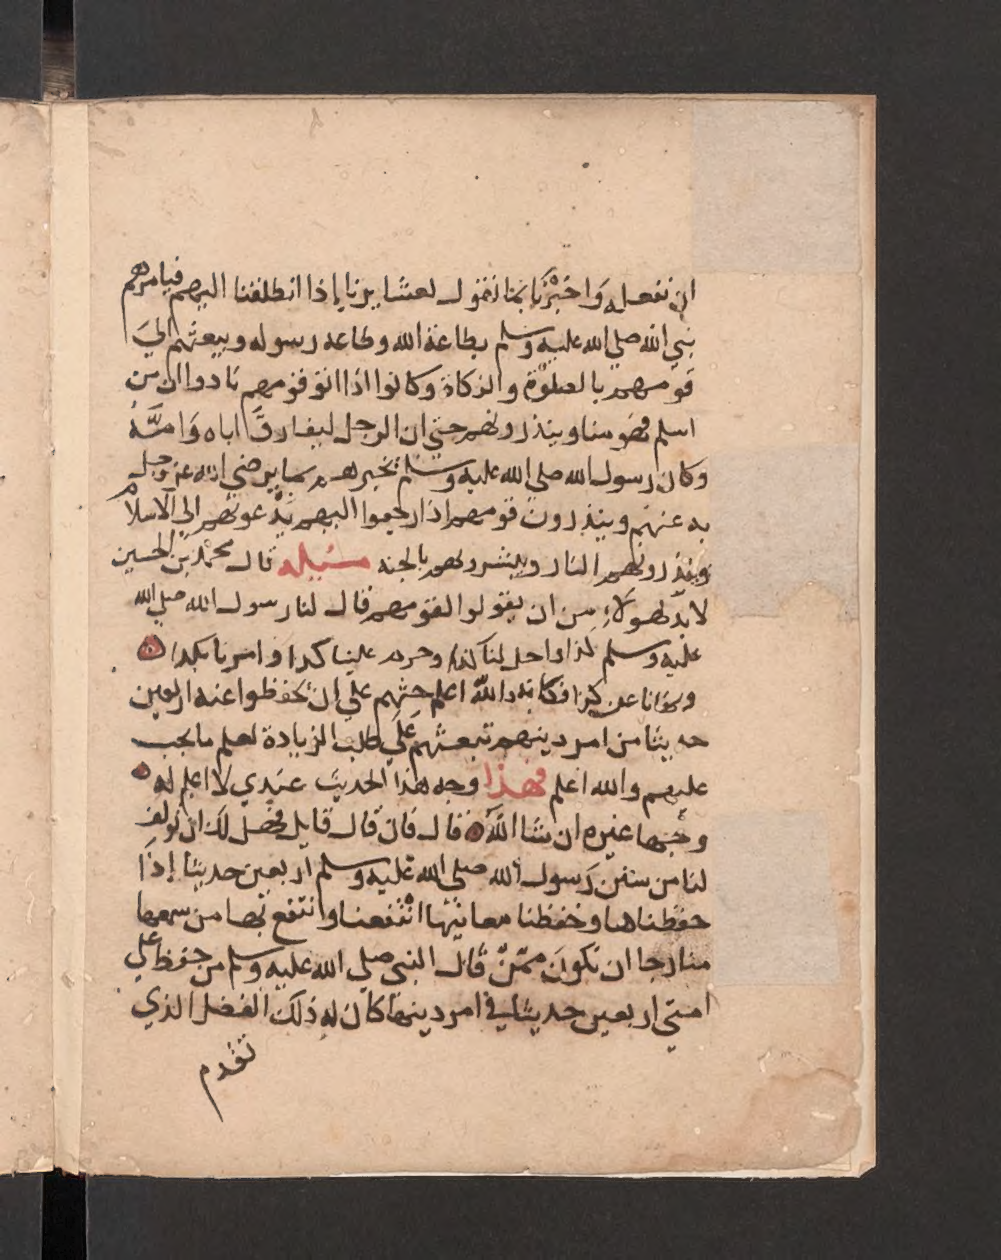 ان نفعله واخبرنا بما نقول لعشايرنا إذا انطلقنا اليهم فيامرهم
نبي الله صلي الله عليه وسلم بطاعة الله وطاعه رسوله ويبعثهم الي
قومهم بالصلوة والزكاة وكانوا اذا اتو قومهم نادوا ان من
اسلم فهو منا وينذرونهم حتي ان الرجل ليفارق اباه وامه
وكان رسول الله صلى الله عليه وسلم يخبرهم بما يرضي الله عز وجل
به عنهم وينذرون قومهم اذا رجعوا اليهم يدعونهم الي الاسلام
وينذرونهم النار ويبشرونهم بالجنه مسئله قال محمد بن الحسين
لابد لهولاء من ان يقولوا لقومهم قال لنا رسول الله صلي الله
عليه وسلم كذا واحل لنا كذا وحرم علينا كدا وامرنا بكدا
ونهانا عن كدا فكانه والله اعلم حثهم علي ان يحفظوا عنه اربعين
حديثا من امر دينهم تبعثهم علي طلب الزيادة لعلم ما يجب
عليهم والله اعلم فهذا وجه هذا الحديث عندي لا اعلم له
وجها غيره ان شا الله قال فان قال قايل فهل لك ان تولف
لنا من سنن رسول الله صلى الله عليه وسلم اربعين حديثا إذا
حفظناها وحفظنا معانيها انتفعنا وانتفع بها من سمعها
منا رجا ان نكون ممن قال النبي صلي الله عليه وسلم من حفظ علي
امتي اربعين حديثا في امر دينها كان له ذلك الفضل الذي
تقدم